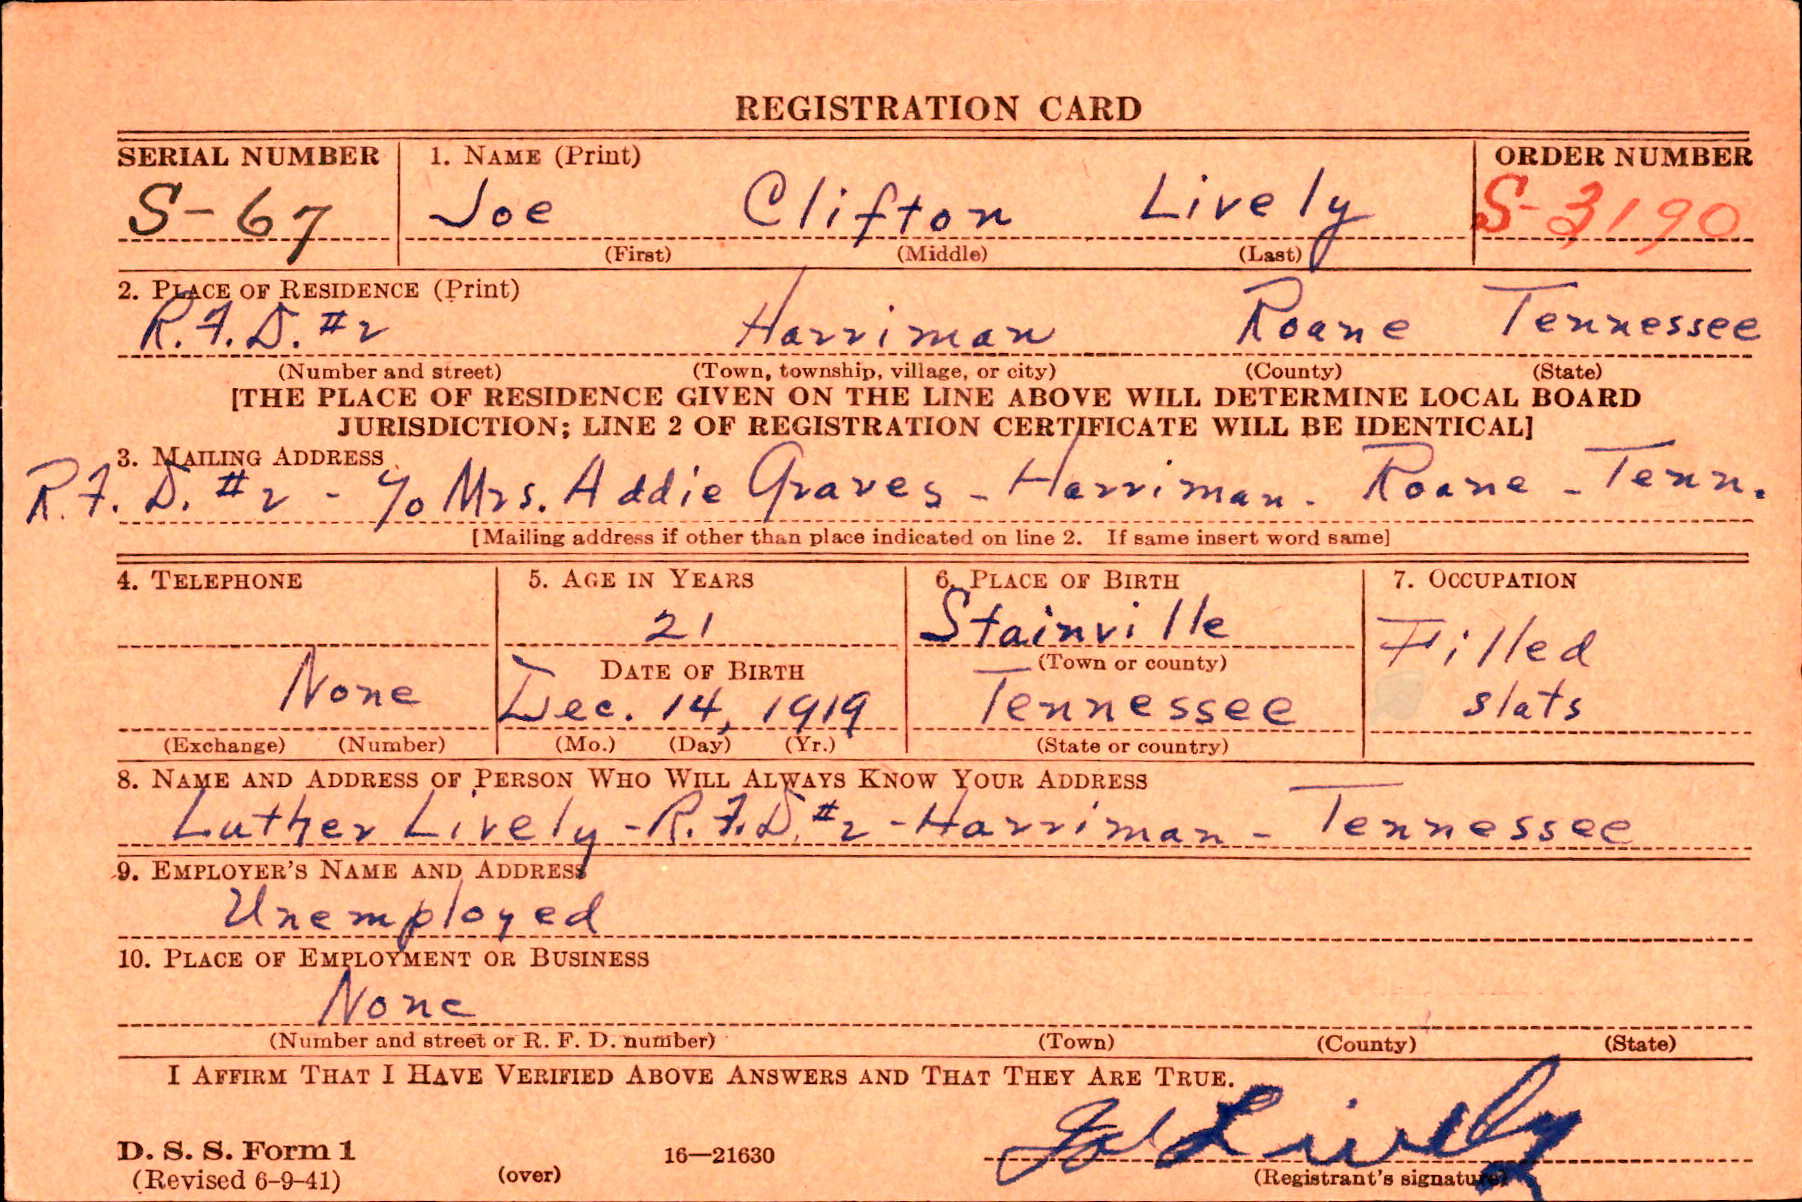 REGISTRATION CARD
SERIAL NUMBER 1. NAME (Print) ORDER NUMBER
S-67 Joe Clifton Lively S-3190
(First) (Middle) (Last)
2. PLACE OF RESIDENCE (Print)
R.F.D. #2 Harriman Roane Tennessee
(Number and street) (Town, township, village, or city) (County) (State)
[THE PLACE OF RESIDENCE GIVEN ON THE LINE ABOVE WILL DETERMINE LOCAL BOARD
JURISDICTION; LINE 2 OF REGISTRATION CERTIFICATE WILL BE IDENTICAL]
3. MAILING ADDRESS
R.F.D. #2 - c/o Mrs. Addie Graves - Harriman. Roane - Tenn.
[Mailing address if other than place indicated on line 2. If same insert word same]
4. TELEPHONE 5. AGE IN YEARS 6. PLACE OF BIRTH 7. OCCUPATION
21 Stainville Filled
DATE OF BIRTH (Town or county)
None Dec. 14, 1919 Tennessee slats
(Exchange) (Number) (Mo.) (Day) (Yr.) (State or country)
8. NAME AND ADDRESS OF PERSON WHO WILL ALWAYS KNOW YOUR ADDRESS
Luther Lively - R.F.D. #2 - Harriman - Tennessee
9. EMPLOYER'S NAME AND ADDRESS
Unemployed
10. PLACE OF EMPLOYMENT OR BUSINESS
None
(Number and street or R. F. D. number) (Town) (County) (State)
I AFFIRM THAT I HAVE VERIFIED ABOVE ANSWERS AND THAT THEY ARE TRUE.
Joe Lively
D. S. S. Form 1 16—21630
(Revised 6-9-41) (over) (Registrant's signature)